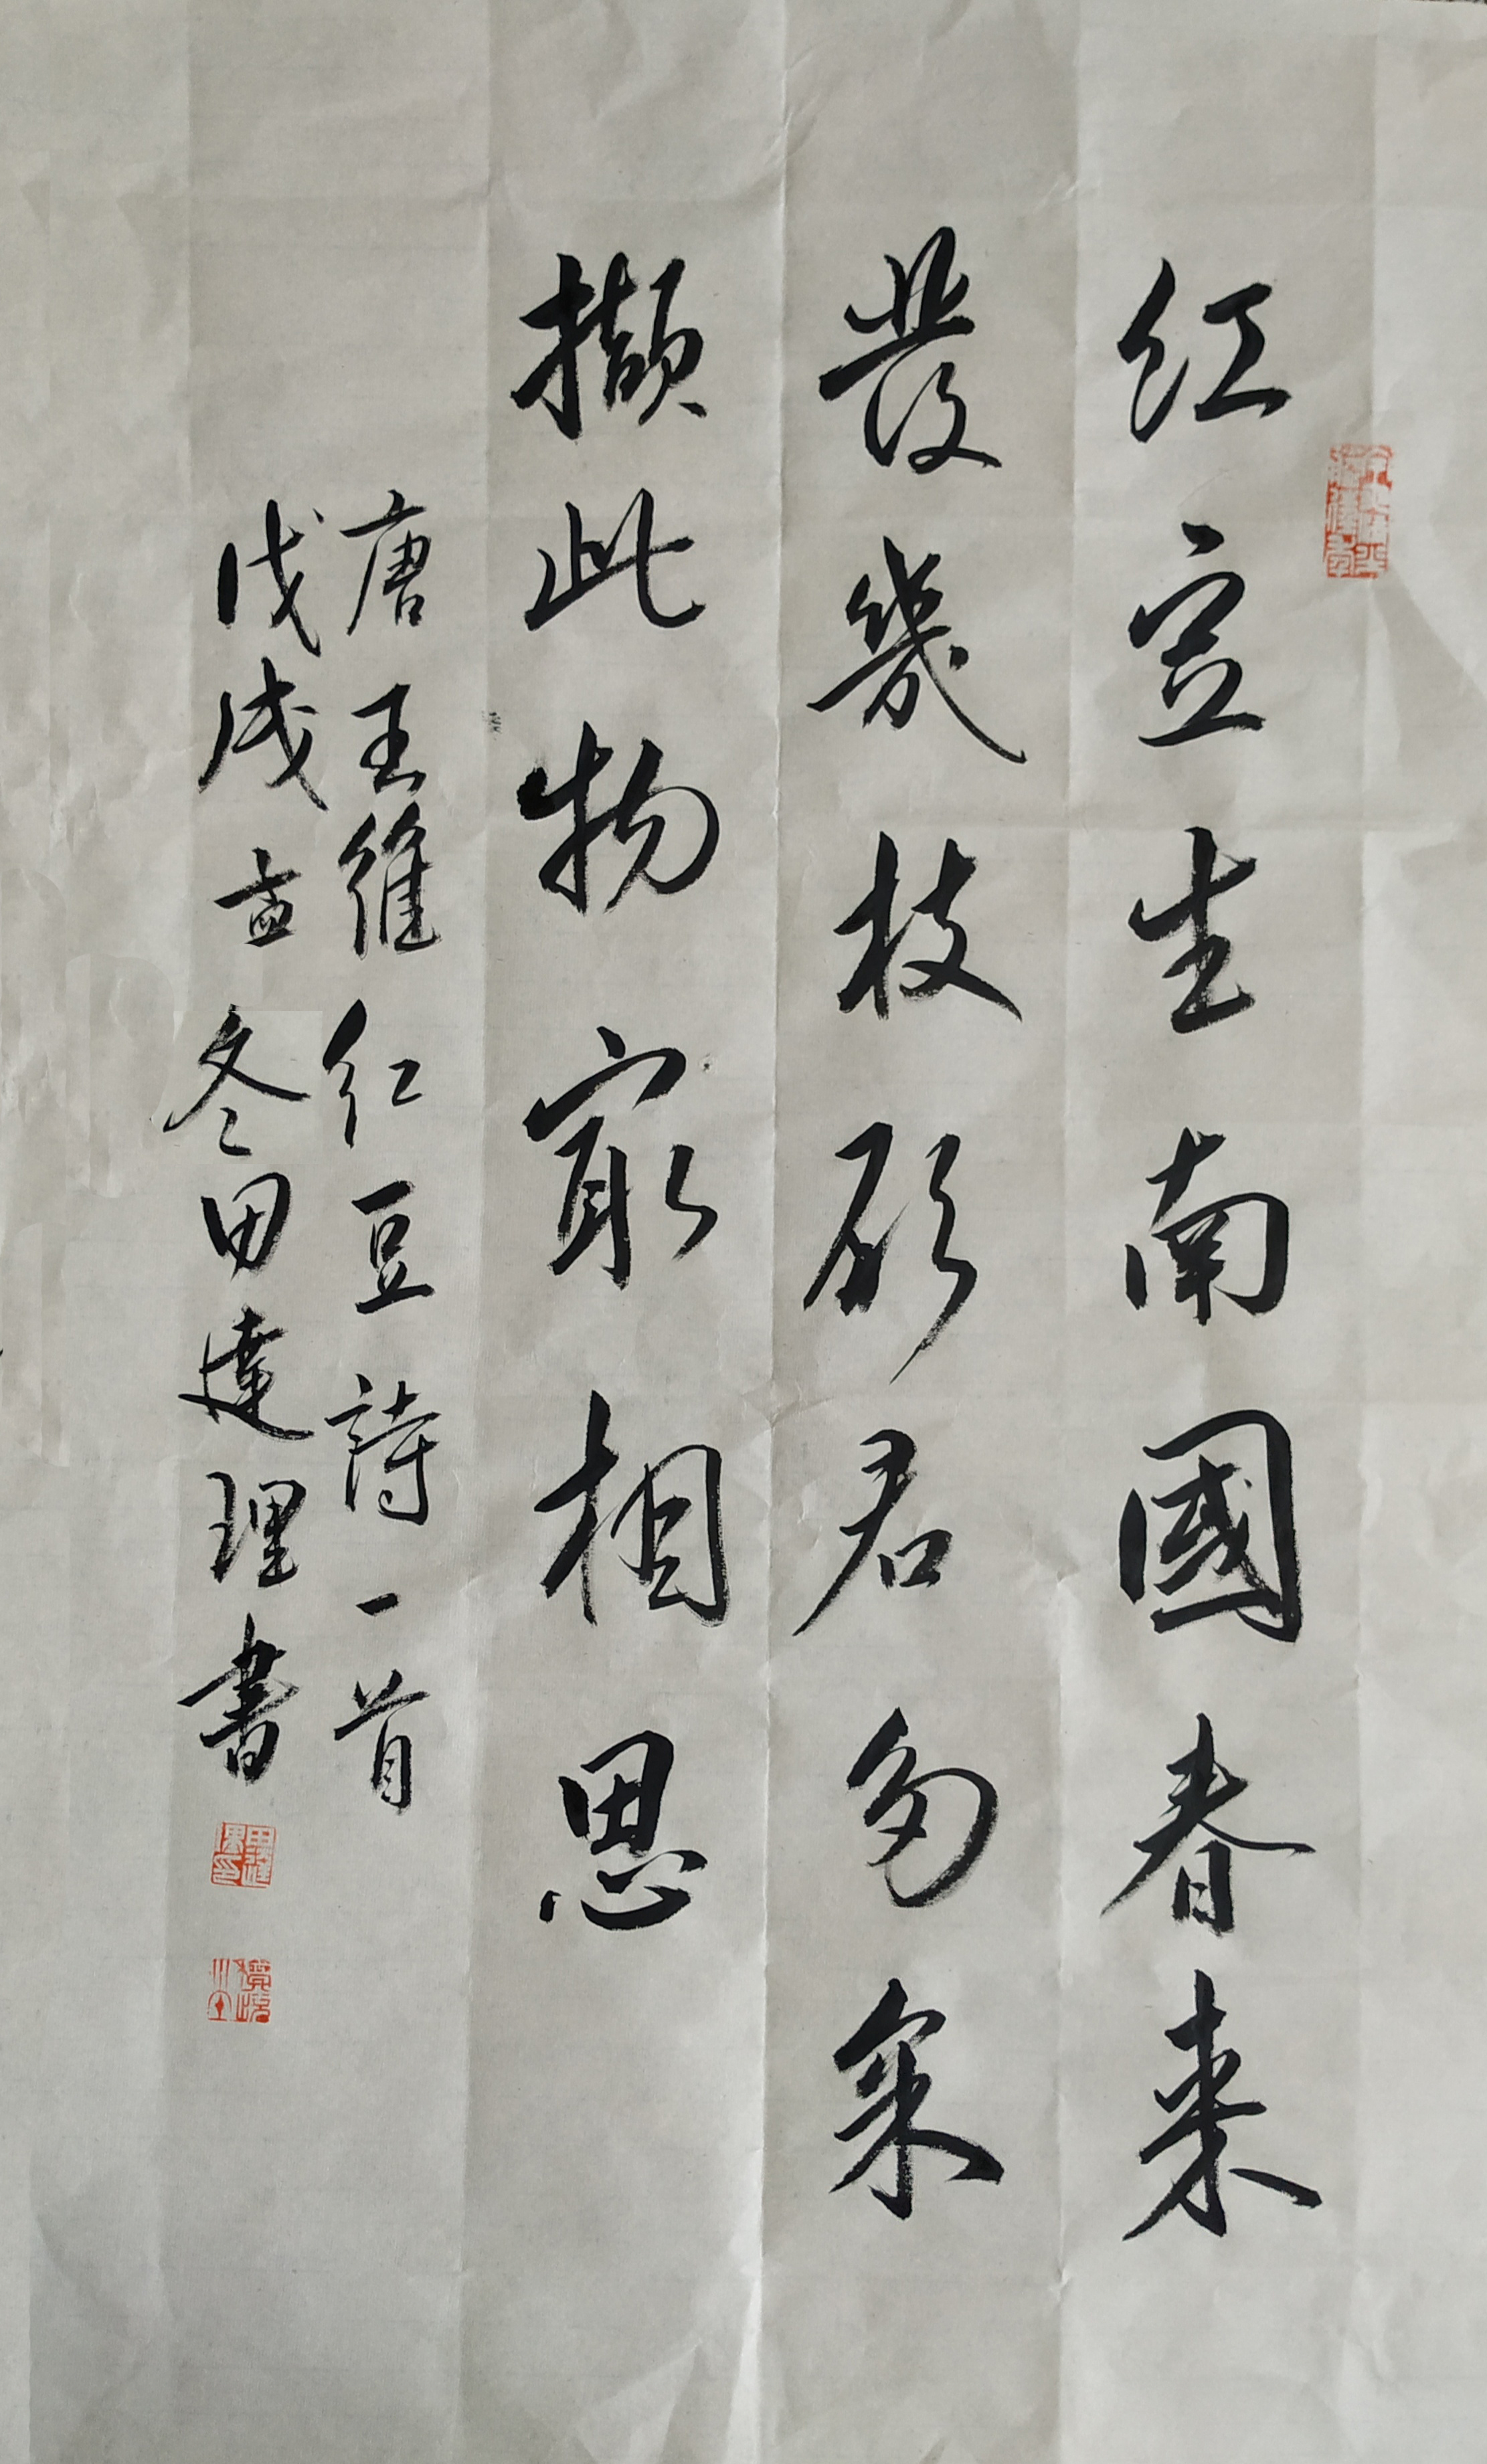 红豆生南國春来
發幾枝願君多采
擷此物最相思
唐王維红豆詩一首
戊戌孟冬田達理書